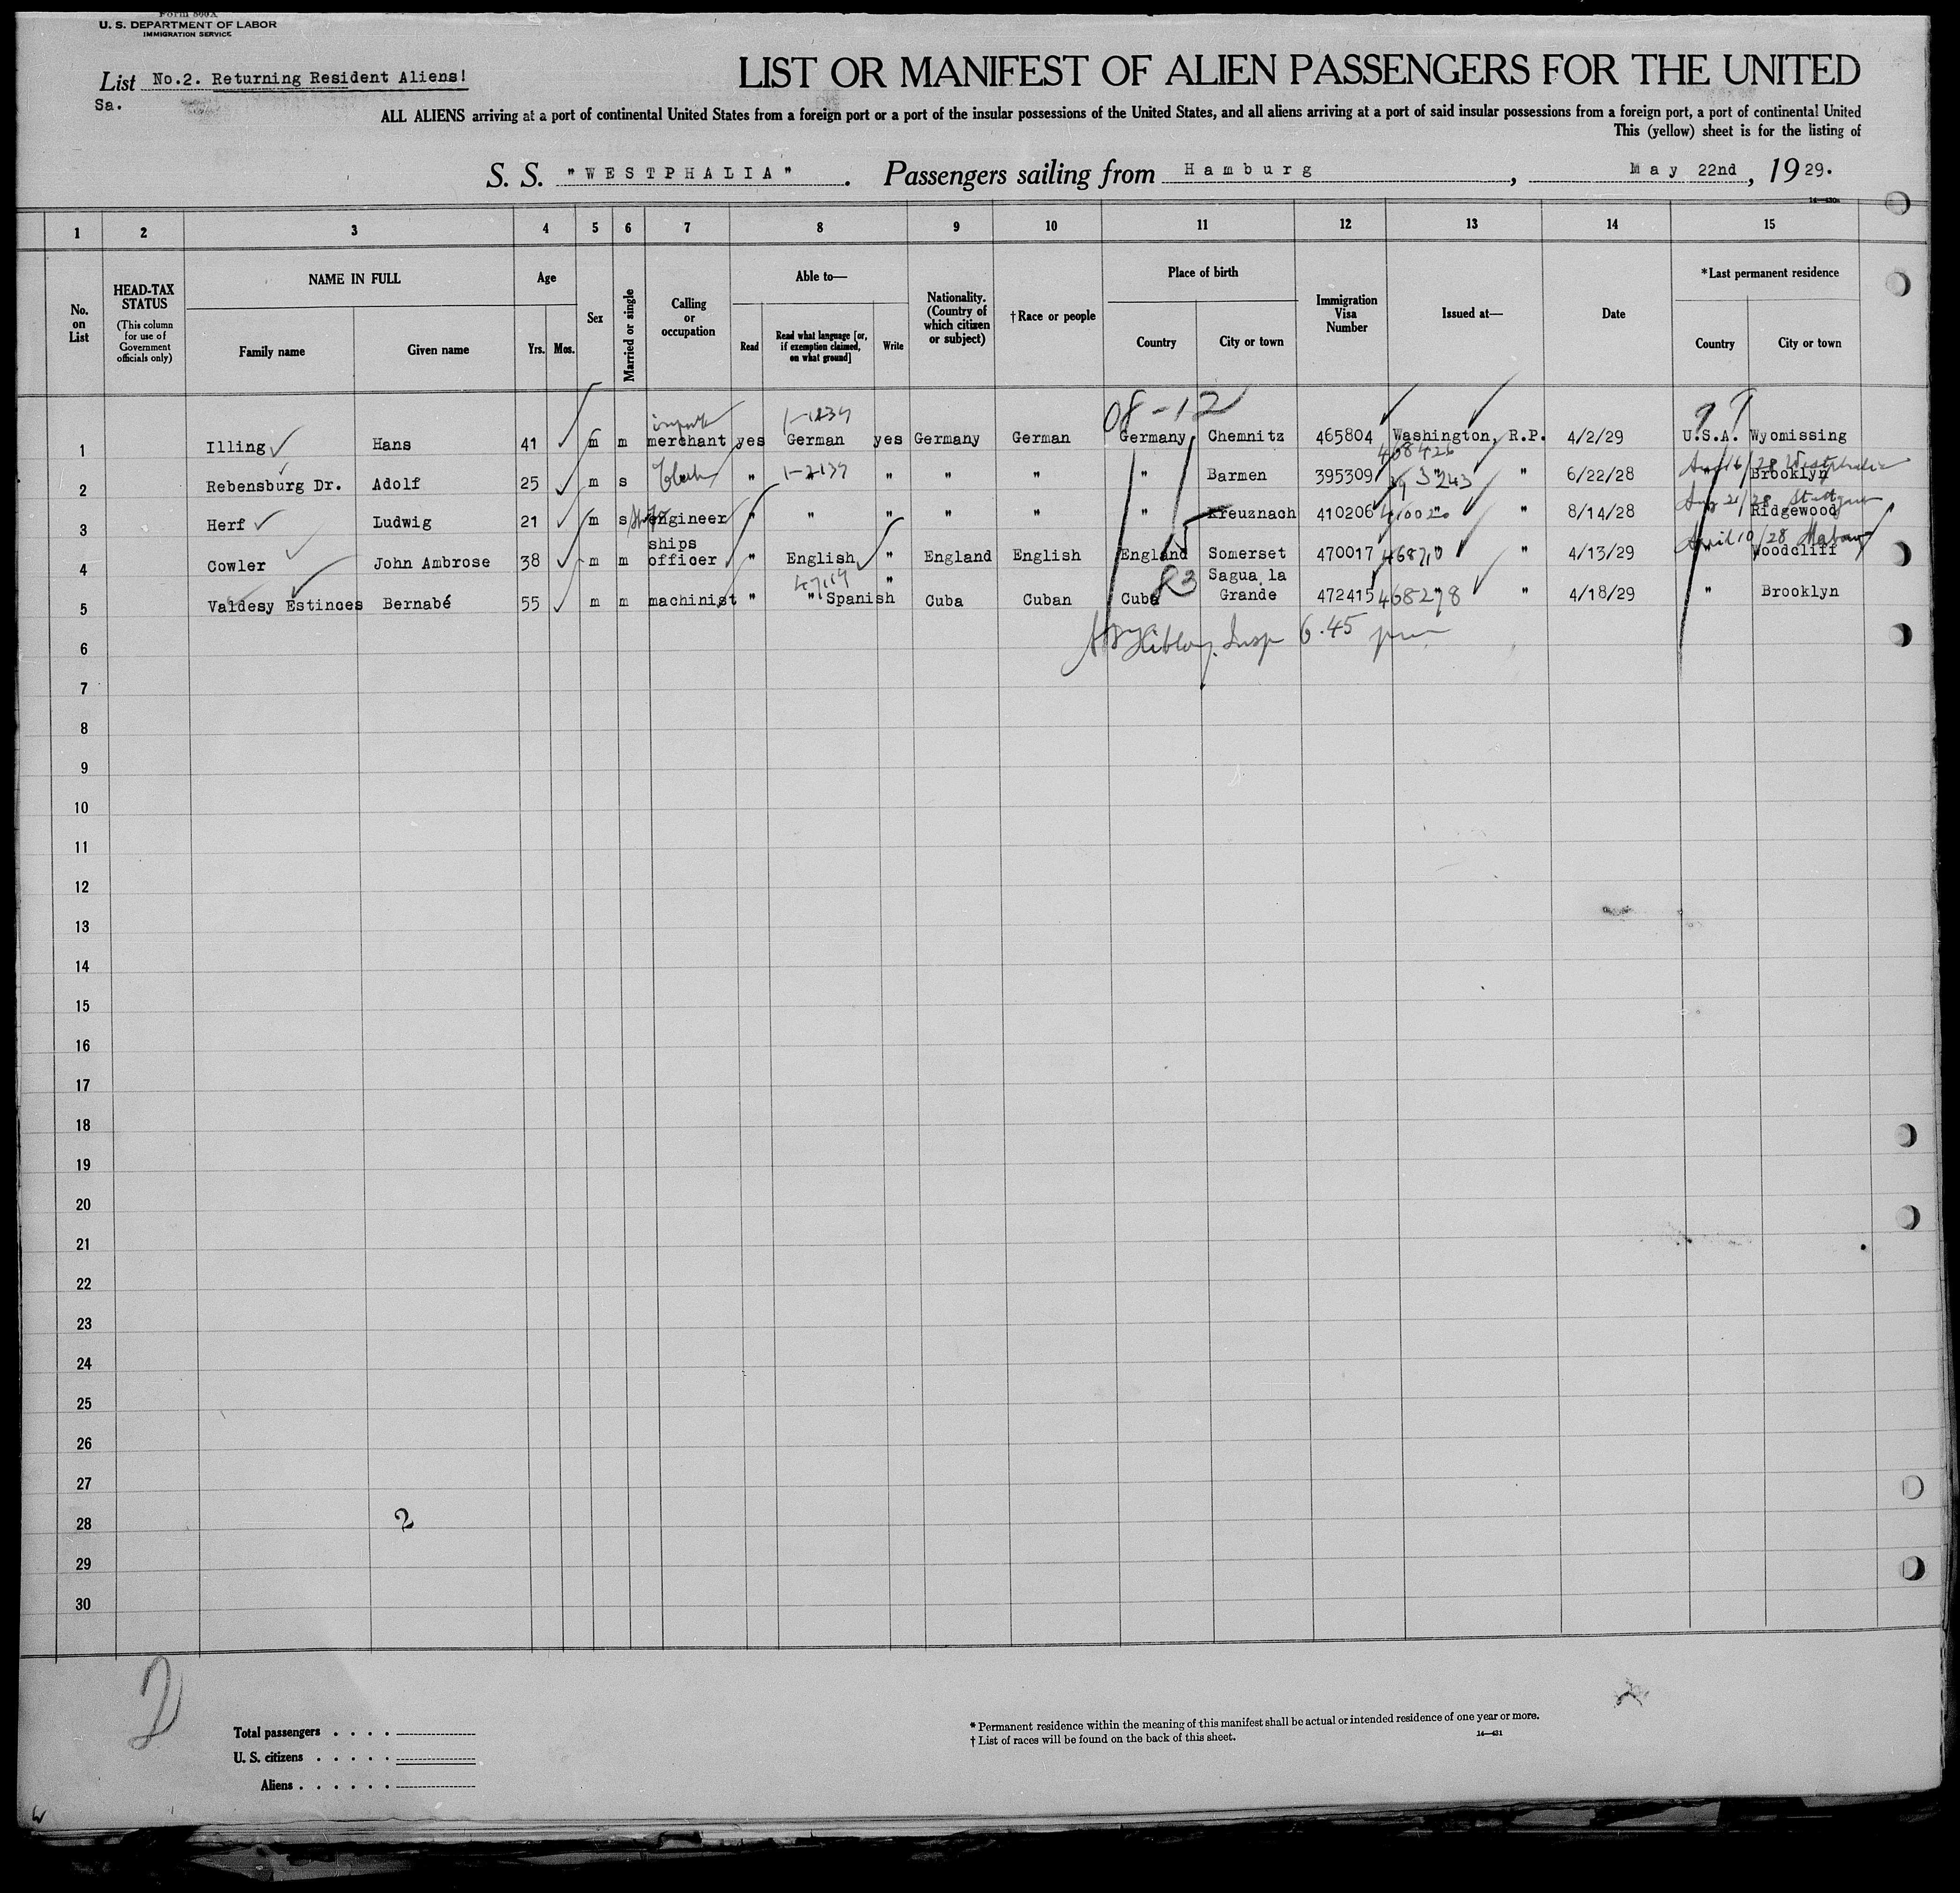 Form 500A
U. S. DEPARTMENT OF LABOR
IMMIGRATION SERVICE
List No.2. Returning Resident Aliens!
Sa.
LIST OR MANIFEST OF ALIEN PASSENGERS FOR THE UNITED
ALL ALIENS arriving at a port of continental United States from a foreign port or a port of the insular possessions of the United States, and all aliens arriving at a port of said insular possessions from a foreign port, a port of continental United
This (yellow) sheet is for the listing of
S. S. "WESTPHALIA". Passengers sailing from Hamburg, May 22nd, 1929.
1 2 3 4 5 6 7 8 9 10 11 12 13 14 15
No. on List
HEAD-TAX STATUS
(This column for use of Government officials only)
NAME IN FULL
Family name Given name
Age
Yrs. Mos.
Sex
Married or single
Calling or occupation
Able to—
Read
Read what language [or, if exemption claimed, on what ground]
Write
Nationality. (Country of which citizen or subject)
†Race or people
Place of birth
Country City or town
Immigration Visa Number
Issued at—
Date
*Last permanent residence
Country City or town
08-12
1 Illing Hans 41 m m merchant yes German yes Germany German Germany Chemnitz 465804 Washington, R.P. 4/2/29 U.S.A. Wyomissing
468426
2 Rebensburg Dr. Adolf 25 m s Clerk " " " " " " Barmen 395309 " " 6/22/28 Brooklyn
3 Herf Ludwig 21 m s engineer " " " " " " Kreuznach 410206 " 8/14/28 Ridgewood
April 10/28
4 Cowler John Ambrose 38 m m ships officer " English " England English England Somerset 470017 " 4/13/29 Woodcliff
5 Valdesy Estinces Bernabé 55 m m machinist " " Spanish " Cuba Cuban Cuba Sagua la Grande 472415 468278 " 4/18/29 " Brooklyn
R3
Insp 6.45 pm
6
7
8
9
10
11
12
13
14
15
16
17
18
19
20
21
22
23
24
25
26
27
28 2
29
30
2
Total passengers . . . .
U. S. citizens . . . . .
Aliens . . . . . .
* Permanent residence within the meaning of this manifest shall be actual or intended residence of one year or more.
† List of races will be found on the back of this sheet.
14—431